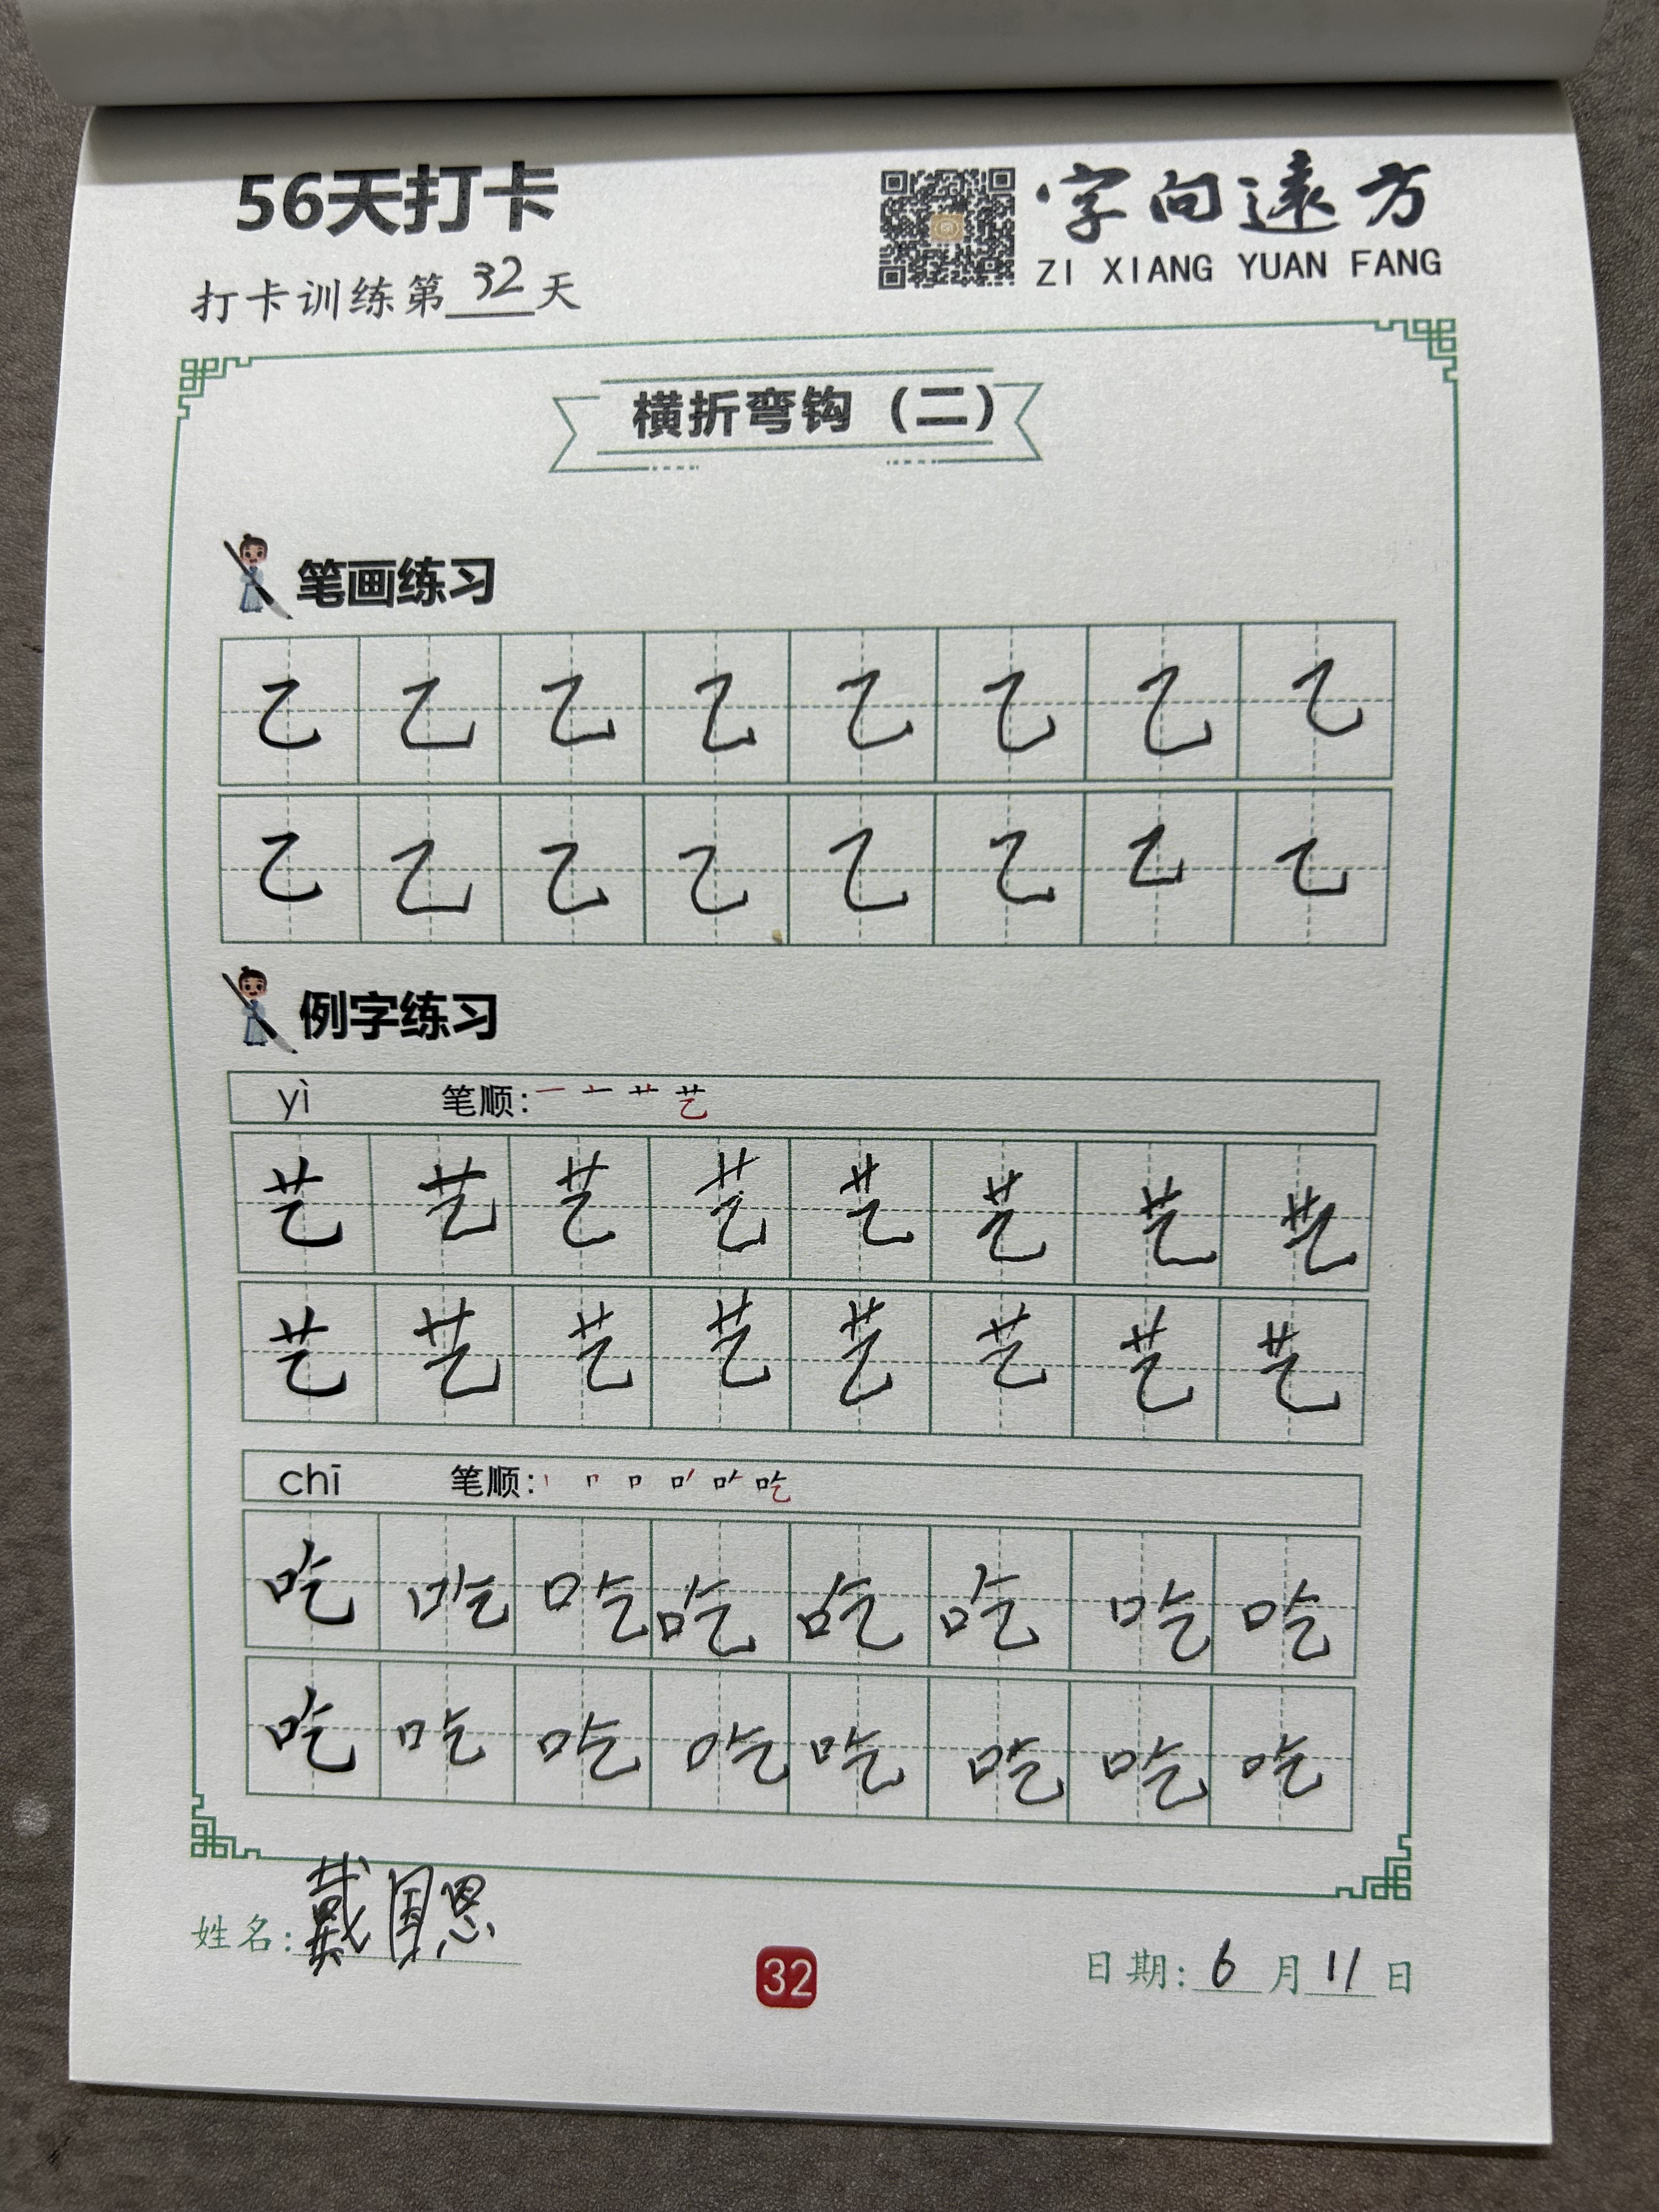 56天打卡
字向遠方
ZI XIANG YUAN FANG
打卡训练第32天
横折弯钩（二）
笔画练习
乙 乙 乙 乙 乙 乙 乙 乙
乙 乙 乙 乙 乙 乙 乙 乙
例字练习
yì 笔顺: 一 艹 艺
艺 艺 艺 艺 艺 艺 艺 艺
艺 艺 艺 艺 艺 艺 艺 艺
chī 笔顺: 丨 口 吃
吃 吃 吃 吃 吃 吃 吃 吃
吃 吃 吃 吃 吃 吃 吃 吃
姓名: 戴国恩
32
日期: 6月11日